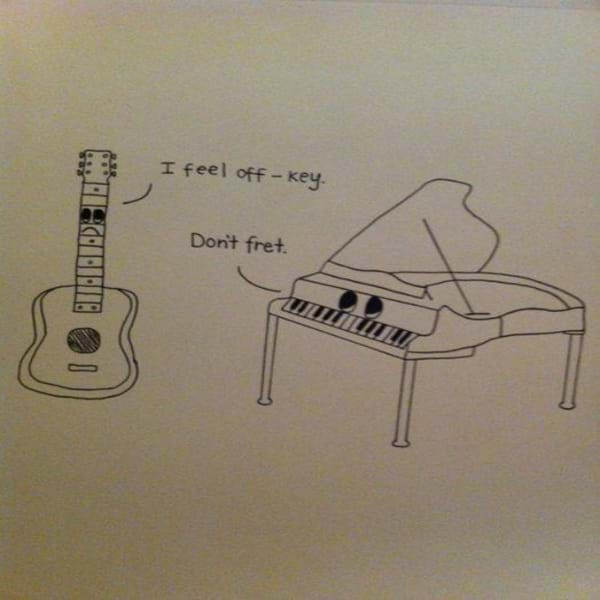 I feel off-key.
Don't fret.